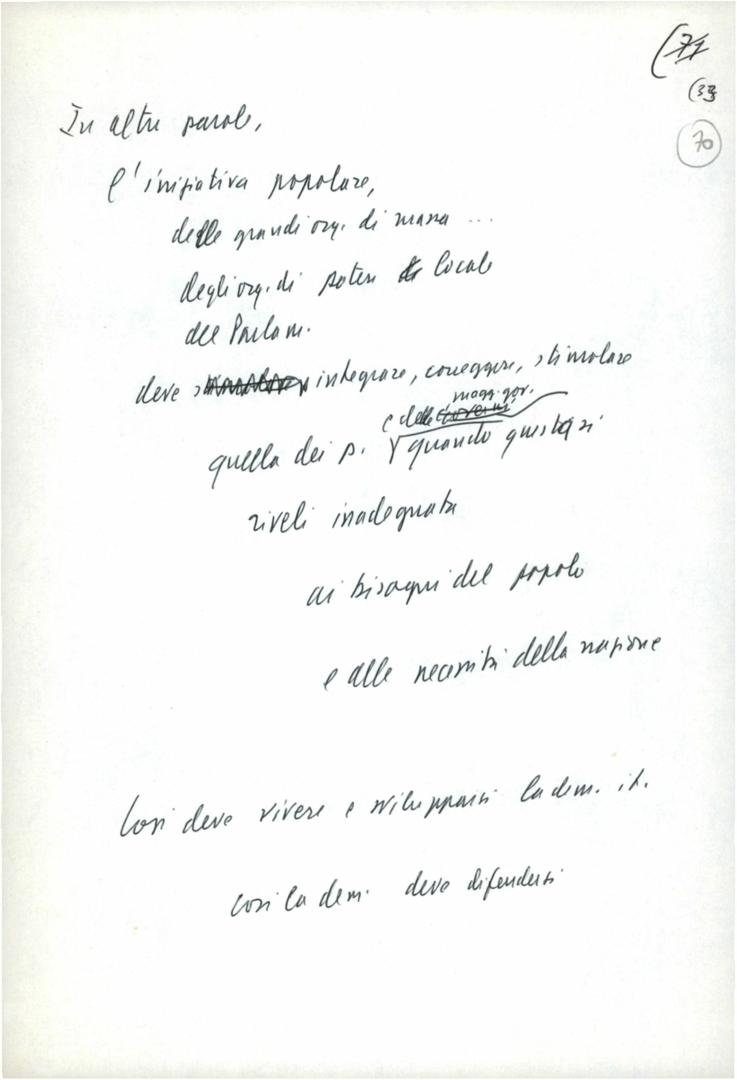 (71
(33
70
In altre parole,
l'iniziativa popolare,
delle grandi org. di massa ...
degli org. di potere locale
del Parlam.
deve integrare, correggere, stimolare
e delle governi magg. gov.
quella dei p. quando questa si
riveli inadeguata
ai bisogni del popolo
e alle necessità della nazione
Così deve vivere e svilupparsi la dem. it.
così la dem. deve difendersi